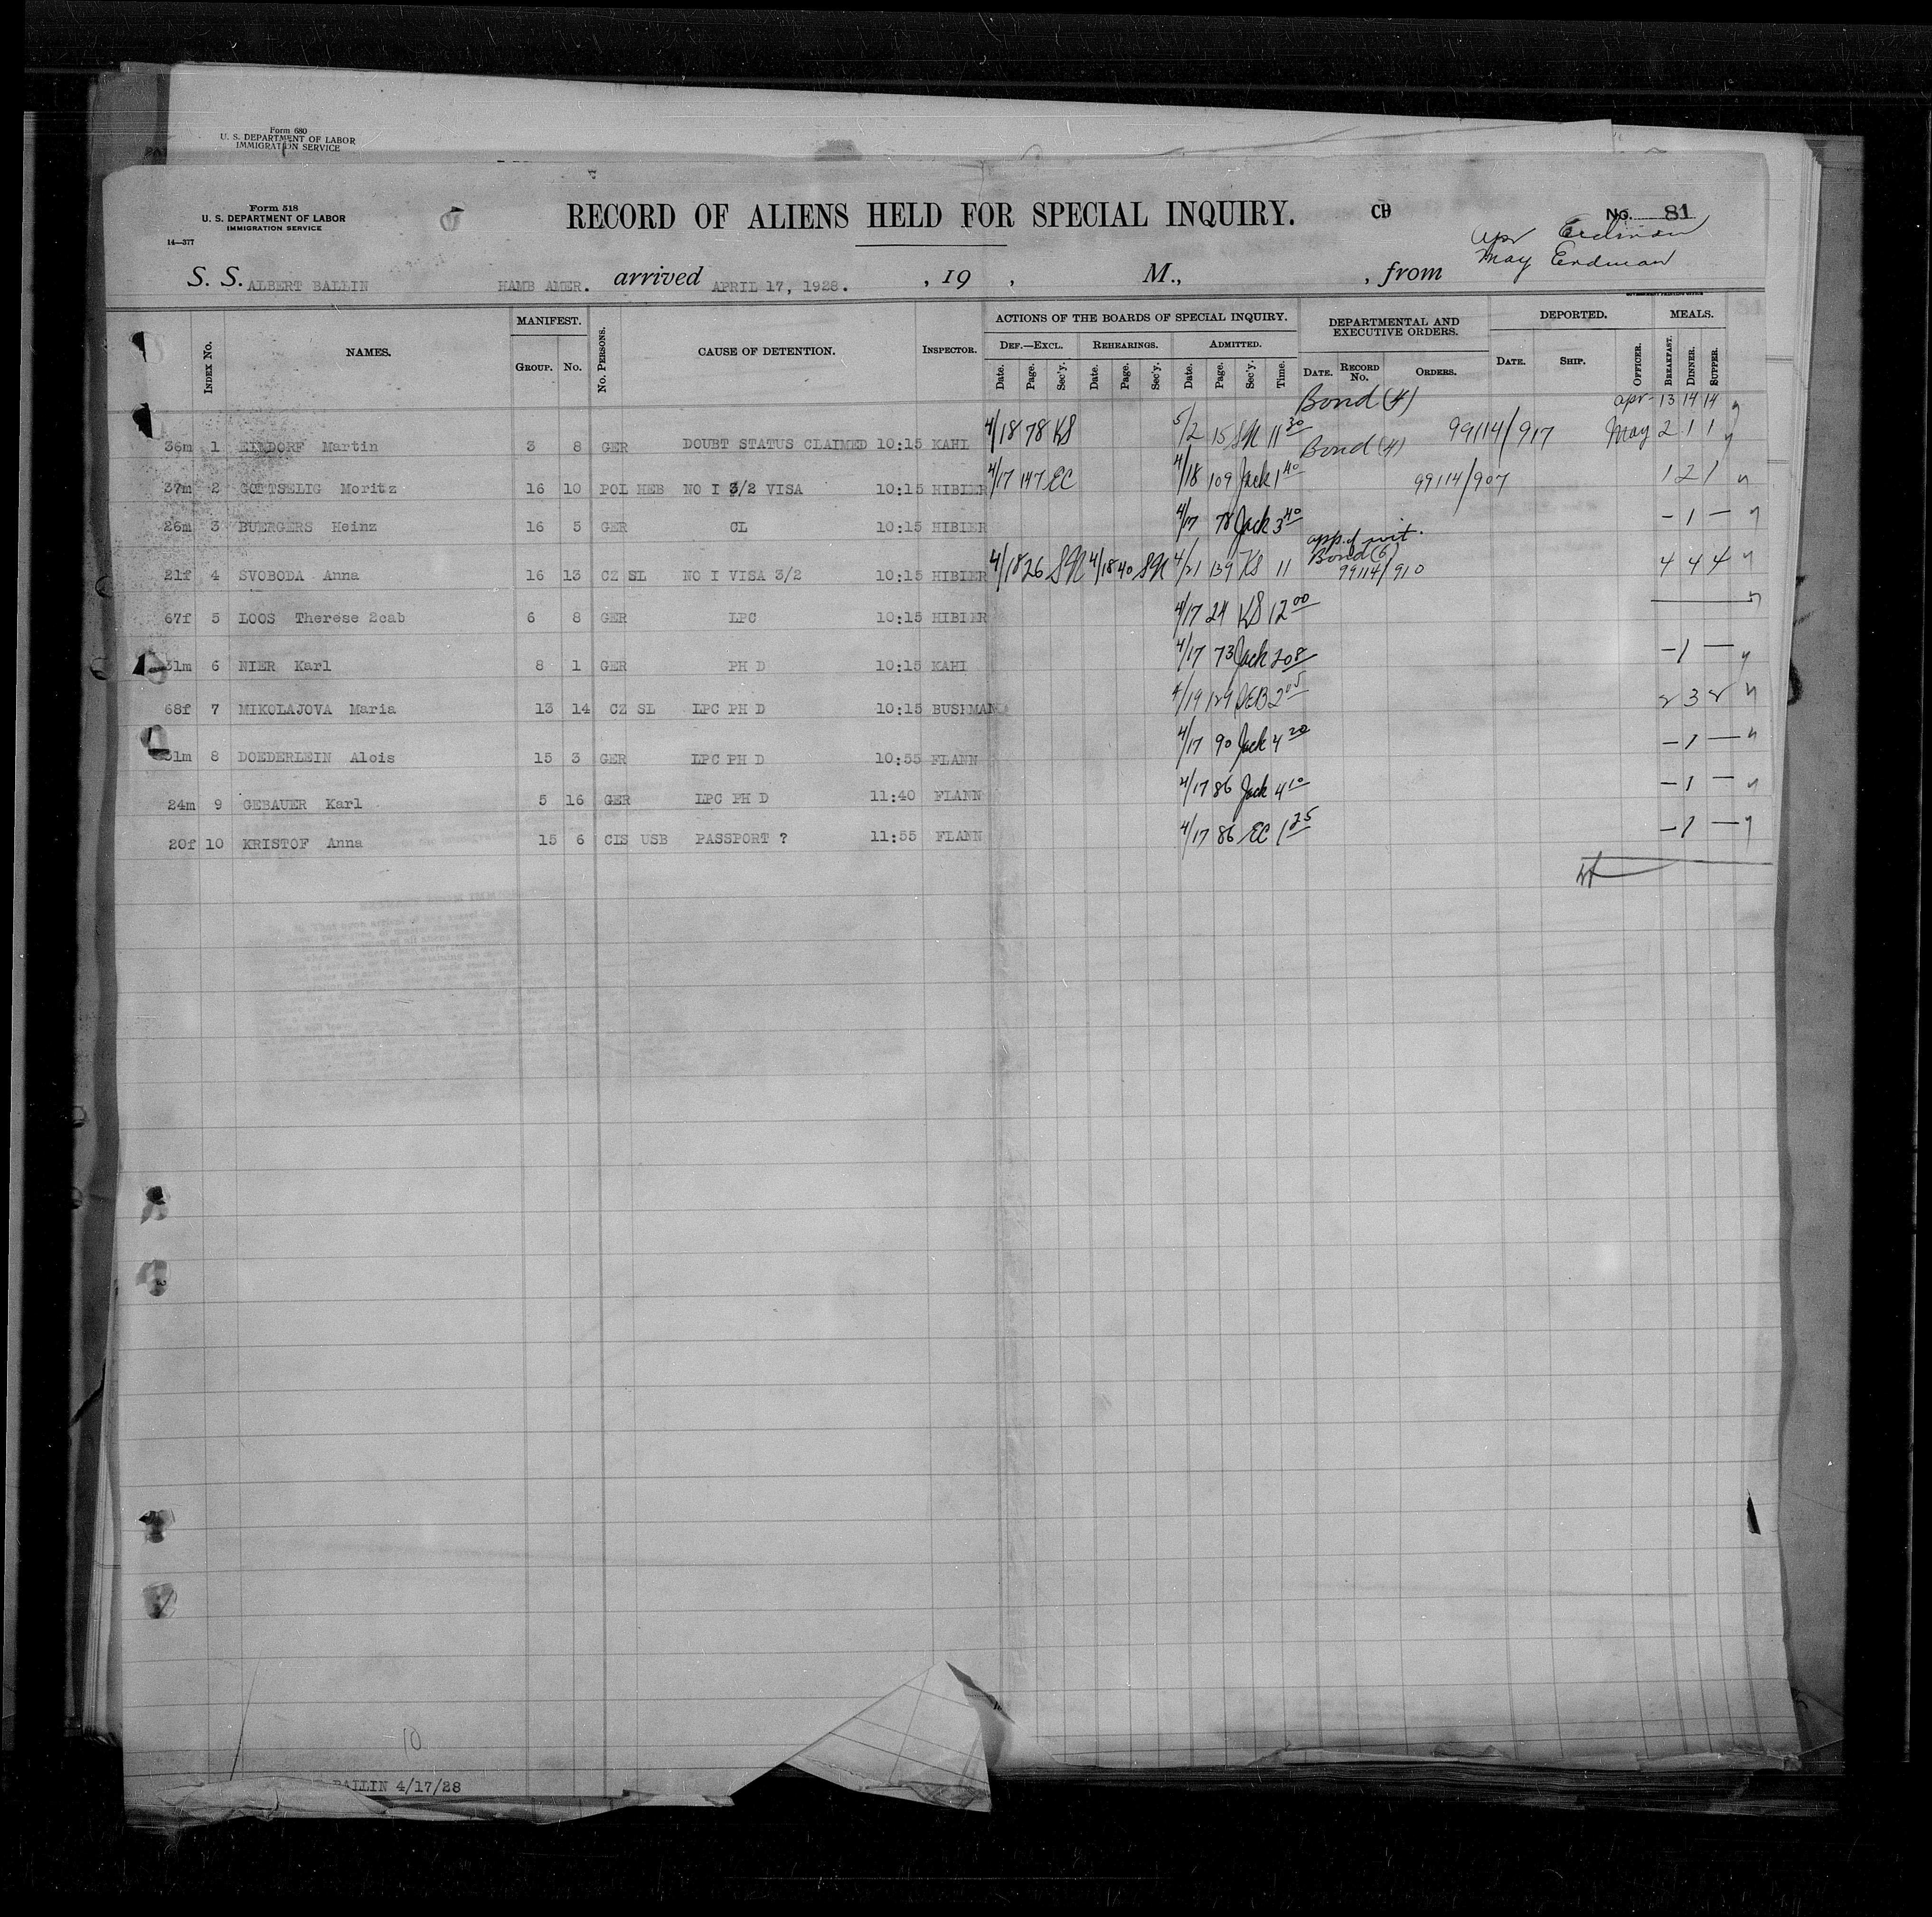 Form 680
U. S. DEPARTMENT OF LABOR
IMMIGRATION SERVICE
Form 518
U. S. DEPARTMENT OF LABOR
IMMIGRATION SERVICE
14—377
RECORD OF ALIENS HELD FOR SPECIAL INQUIRY.
No. 81
Apr Erdman
May Erdman
S. S. ALBERT BALLIN HAMB AMER. arrived APRIL 17, 1928. , 19 , M., , from
GOVERNMENT PRINTING OFFICE
MANIFEST. ACTIONS OF THE BOARDS OF SPECIAL INQUIRY. DEPARTMENTAL AND EXECUTIVE ORDERS. DEPORTED. MEALS.
Index No. NAMES. Group. No. No. Persons. CAUSE OF DETENTION. Inspector. Def.—Excl. Rehearings. Admitted.
Date. Page. Sec'y. Date. Page. Sec'y. Date. Page. Sec'y. Time. Date. Record No. Orders. Date. Ship. Officer. Breakfast. Dinner. Supper.
Bond (4) Apr 13 14 14
36m 1 Martin 3 8 GER DOUBT STATUS CLAIMED 10:15 KAHL 4/18 78 KS 5/2 15 SN 11 30 99114/917 May 2 1 1
Bond (4)
37m 2 GOTTSELIG Moritz 16 10 POL HEB NO I 3/2 VISA 10:15 HIBIER 4/17 147 EC 4/18 109 Jack 1 40 99114/907 1 2 1
26m 3 BUERGERS Heinz 16 5 GER CL 10:15 HIBIER 4/17 78 Jack 3 40 – 1 –
app. of wit.
Bond (6)
21f 4 SVOBODA Anna 16 13 CZ SL NO I VISA 3/2 10:15 HIBIER 4/18 26 SN 4/18 40 SN 4/21 139 KS 11 99114/910 4 4 4
67f 5 LOOS Therese 2cab 6 8 GER LPC 10:15 HIBIER 4/17 24 KS 12 00
31m 6 NIER Karl 8 1 GER PH D 10:15 KAHL 4/17 73 Jack 2 08 – 1 –
68f 7 MIKOLAJOVA Maria 13 14 CZ SL LPC PH D 10:15 BUSHMAN 4/19 129 2 05 2 3 2
31m 8 DOEDERLEIN Alois 15 3 GER LPC PH D 10:55 FLANN 4/17 90 Jack 4 20 – 1 –
24m 9 GEBAUER Karl 5 16 GER LPC PH D 11:40 FLANN 4/17 86 Jack 4 10 – 1 –
20f 10 KRISTOF Anna 15 6 CIS USB PASSPORT ? 11:55 FLANN 4/17 86 EC 1 25 – 1 –
10
BALLIN 4/17/28